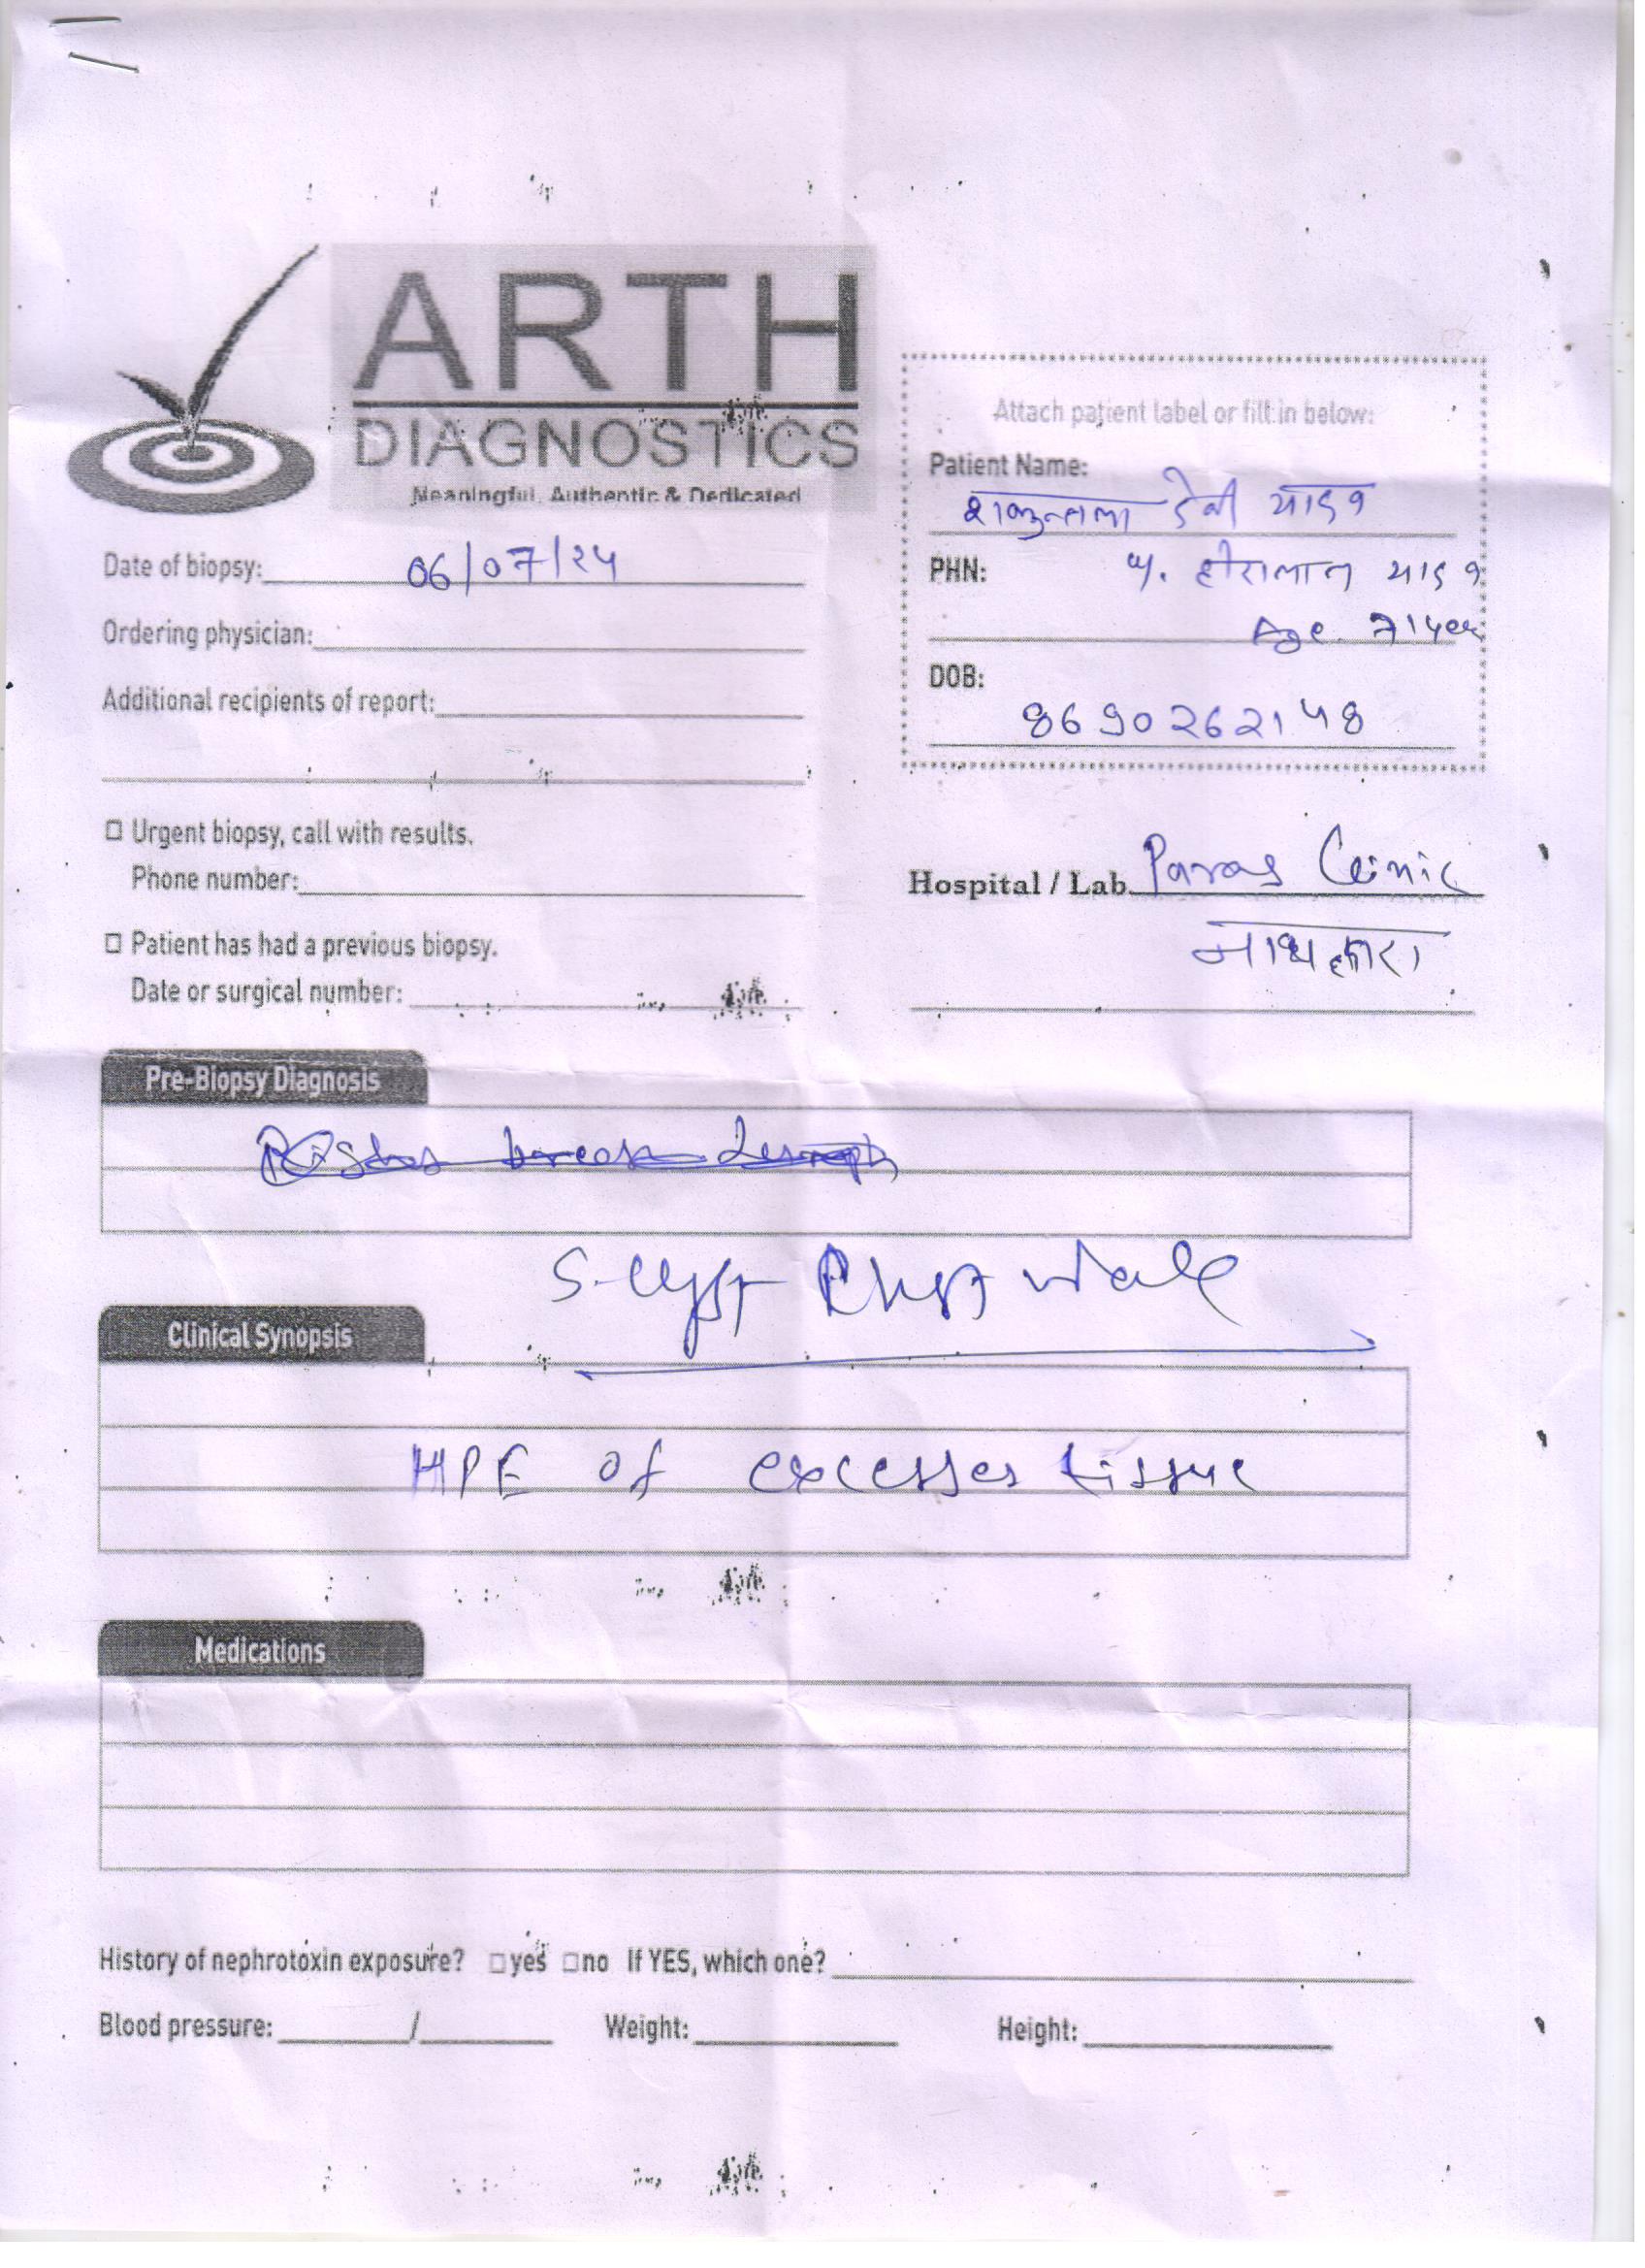 ARTH
DIAGNOSTICS
Meaningful, Authentic & Dedicated
Attach patient label or fill in below:
Patient Name:
शकुन्तला देवी यादव
Date of biopsy: 06/07/24
PHN: हीरालाल यादव
Ordering physician:
Age 71 year
Additional recipients of report:
DOB:
8690262148
Urgent biopsy, call with results.
Phone number:
Hospital / Lab. Paras Clinic
नाथद्वारा
Patient has had a previous biopsy.
Date or surgical number:
Pre-Biopsy Diagnosis
breast
S-cyst Chest wall
Clinical Synopsis
HPE of excesses tissue
Medications
History of nephrotoxin exposure? yes no If YES, which one?
Blood pressure: / Weight: Height: